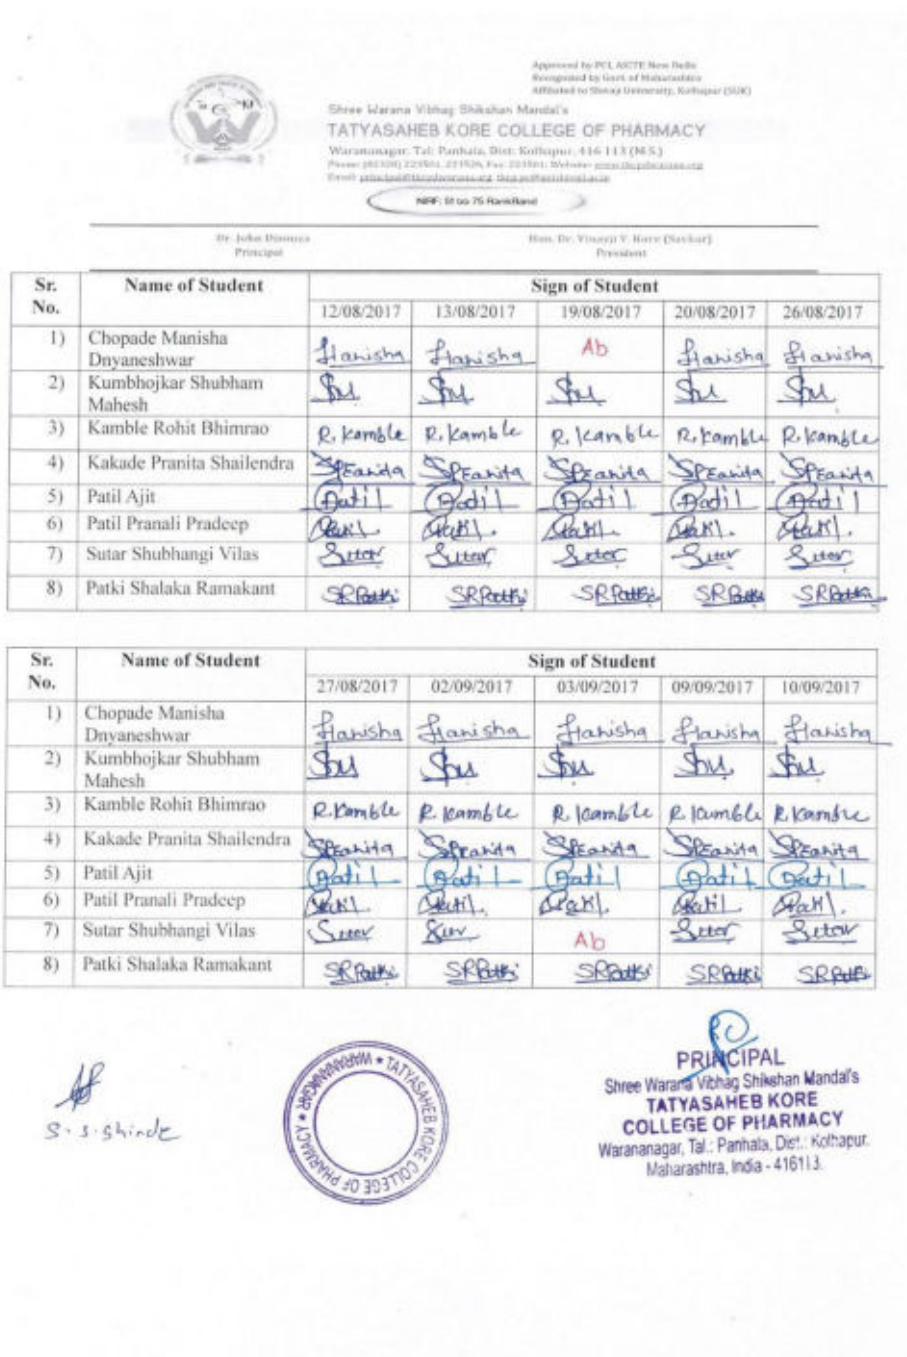 Approved by PCI, AICTE New Delhi
Recognized by Govt. of Maharashtra
Affiliated to Shivaji University, Kolhapur (SUK)
Shree Warana Vibhag Shikshan Mandal's
TATYASAHEB KORE COLLEGE OF PHARMACY
Warananagar, Tal: Panhala, Dist: Kolhapur, 416 113 (M.S.)
NIRF: 51 to 75 RankBand
Dr. John Hon. Dr. Vinayji V. Kore (Savkar)
Principal President
Sr. No. Name of Student Sign of Student
12/08/2017 13/08/2017 19/08/2017 20/08/2017 26/08/2017
1) Chopade Manisha
Dnyaneshwar Manisha Manisha Ab Manisha Manisha
2) Kumbhojkar Shubham
Mahesh
3) Kamble Rohit Bhimrao R. Kamble R. Kamble R. Kamble R. Kamble R. Kamble
4) Kakade Pranita Shailendra
5) Patil Ajit Patil Patil Patil Patil Patil
6) Patil Pranali Pradeep
7) Sutar Shubhangi Vilas Sutar Sutar Sutar Sutar Sutar
8) Patki Shalaka Ramakant SRPatki SRPatki SRPatki SRPatki SRPatki
Sr. No. Name of Student Sign of Student
27/08/2017 02/09/2017 03/09/2017 09/09/2017 10/09/2017
1) Chopade Manisha
Dnyaneshwar Manisha Manisha Manisha Manisha Manisha
2) Kumbhojkar Shubham
Mahesh
3) Kamble Rohit Bhimrao R. Kamble R. Kamble R. Kamble R. Kamble R. Kamble
4) Kakade Pranita Shailendra
5) Patil Ajit Patil Patil Patil Patil Patil
6) Patil Pranali Pradeep
7) Sutar Shubhangi Vilas Sutar Ab Sutar Sutar
8) Patki Shalaka Ramakant SRPatki SRPatki SRPatki SRPatki SRPatki
S. S. Shinde
TATYASAHEB KORE COLLEGE OF PHARMACY * WARANANAGAR *
PRINCIPAL
Shree Warana Vibhag Shikshan Mandal's
TATYASAHEB KORE
COLLEGE OF PHARMACY
Warananagar, Tal.: Panhala, Dist.: Kolhapur.
Maharashtra, India - 416113.